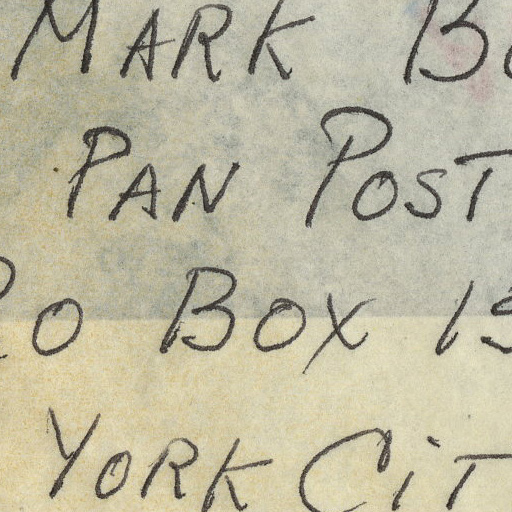 MARK B
PAN POST
PO BOX 15
YORK CIT